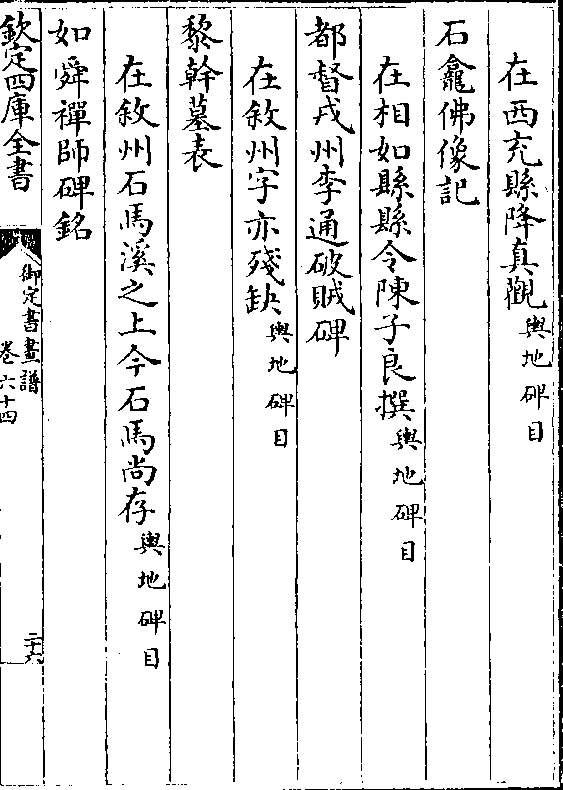 在西充縣降真觀輿地碑目
石龕佛像記
在相如縣縣令陳子良撰輿地碑目
都督戎州李通破賊碑
在敘州字亦殘缺輿地碑目
黎幹墓表
在敘州石馬溪之上今石馬尚存輿地碑目
如舜禪師碑銘
欽定四庫全書
御定書畫譜
卷六十四
二十六